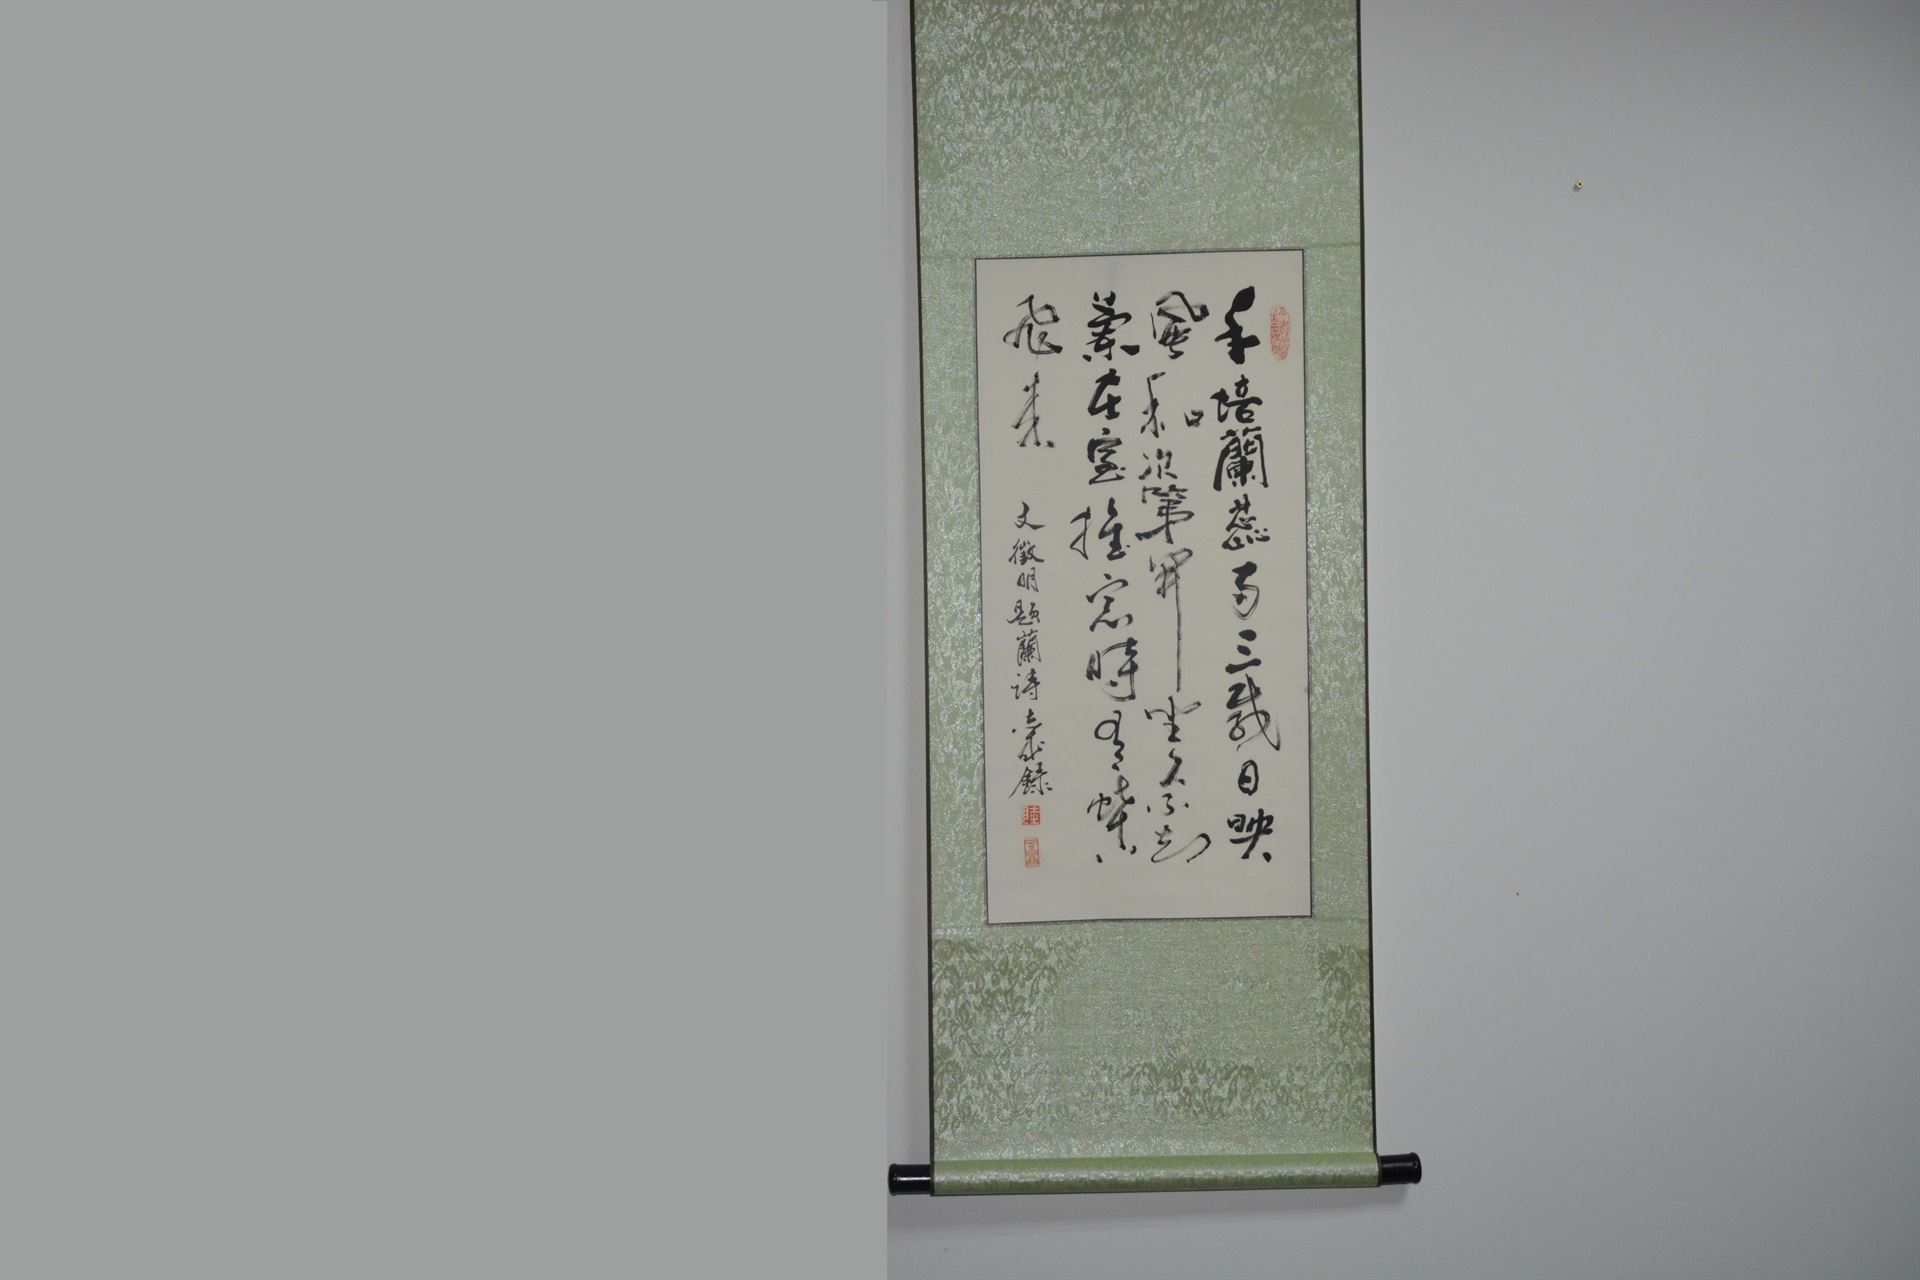 手培蘭蕊两三栽日映
風和次第開坐久不知
香在室推窓時有蝶
飛来
文徵明題蘭詩 錄